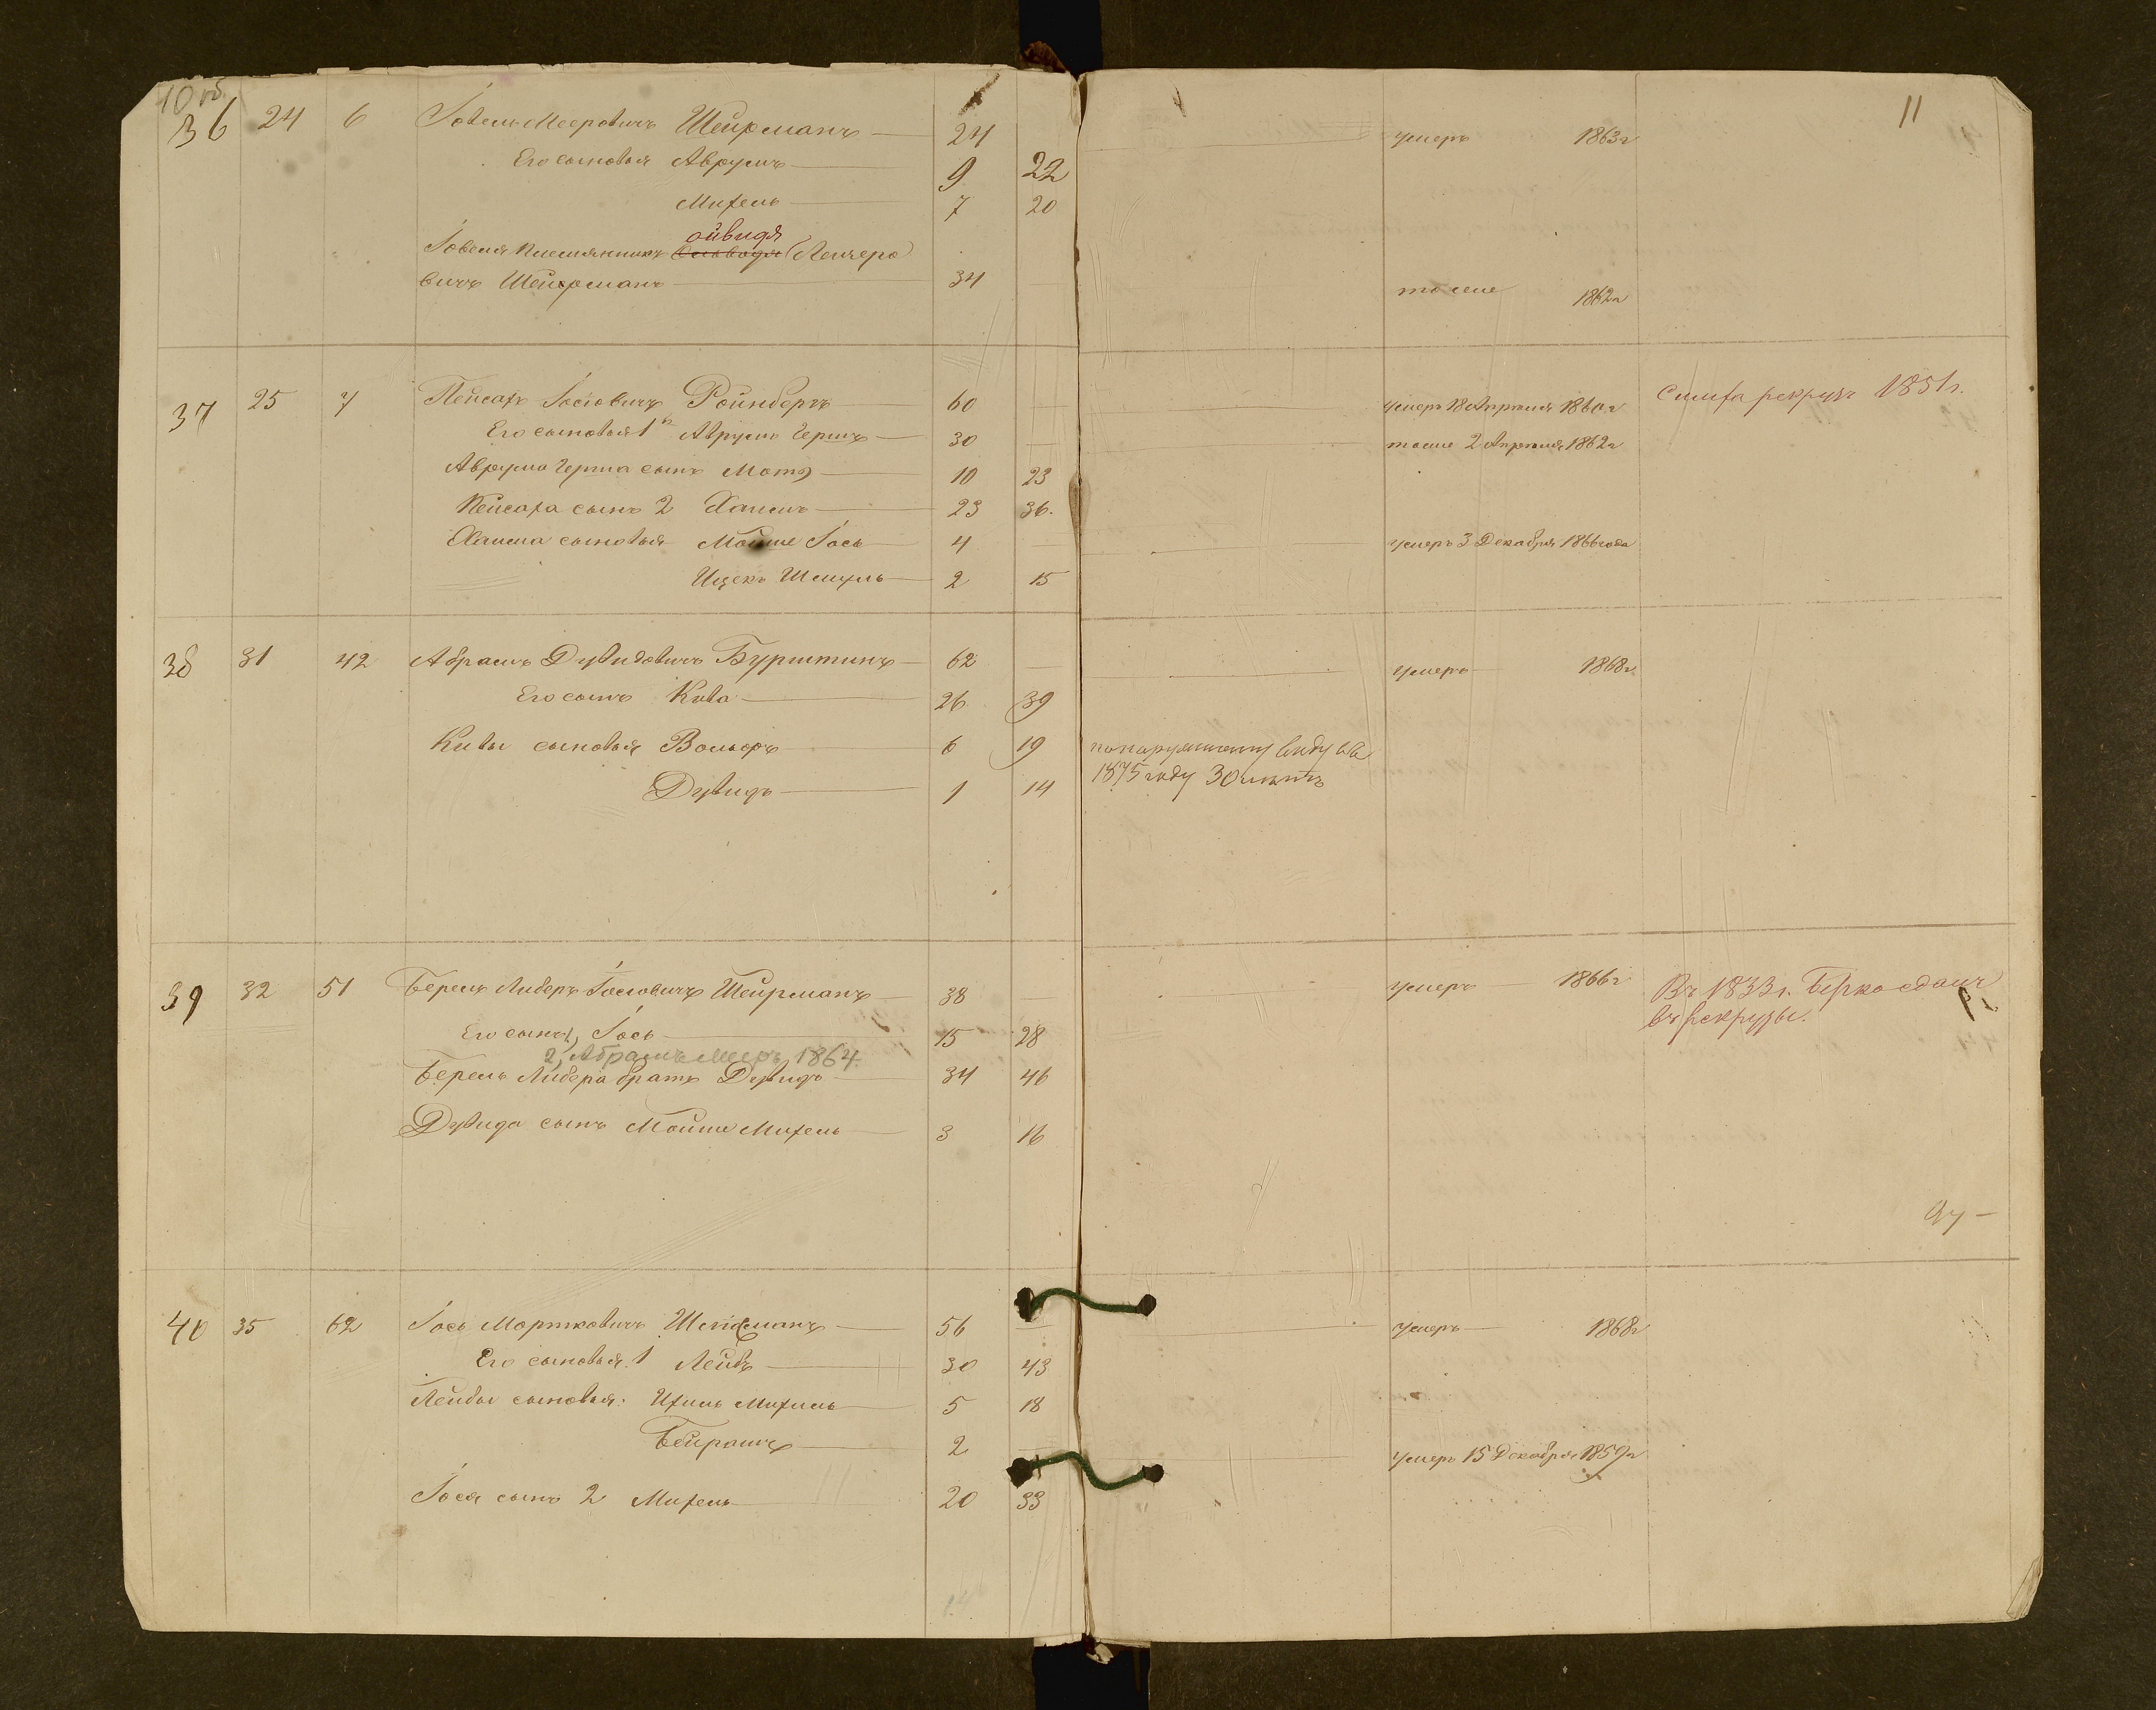 10 об.
36 24 6 Іовель Мееровичъ Шейрманъ 24 умеръ 1863 г
11
Его сыновья Аврумъ 9 22
Михель 7 20
ойвидя
Іовеля племянникъ (Лейзеро
вичъ Шейрманъ 34 тоже 1862 г
37 25 7 Пейсахъ Іосіовичъ Ройнбергъ 60 умеръ 18 Апреля 1860 г рекрутъ 1851 г.
Его сыновья 1й Аврумъ Гершъ 30 тоже 2 Апреля 1862 г
Аврума Герша сынъ Мотя 10 23
Пейсаха сынъ 2 Хаимъ 23 36.
Хаима сыновья Мойше Іось 4 умеръ 3 Декабря 1866 года
Ицекъ Шмуль 2 15
38 31 42 Абрамъ Дувидовичъ Бурштинъ 62 умеръ 1868 г.
Его сынъ Кива 26 39
Кивы сыновья Вольфъ 6 19 по наружному виду въ
1875 году 30 летъ
Дувидъ 1 14
39 32 51 Берель Либеръ Іосіовичъ Шейрманъ 38 умеръ 1866 г Въ 1833 г. Берко сданъ
въ рекруты.
Его сынъ 1, Іось 15 28
2, Абрамъ Мееръ 1864.
Берель Либера братъ Дувидъ 34 46
Дувида сынъ Мойше Михель 3 16
40 35 62 Іось Мортковичъ 56 умеръ 1868 г
Его сыновья 1 Лейбъ 30 43
Лейбы сыновья: Ихиль Михель 5 18
Бейрамъ 2 умеръ 15 Декабря 1859 г
Іося сынъ 2 Михель 20 33